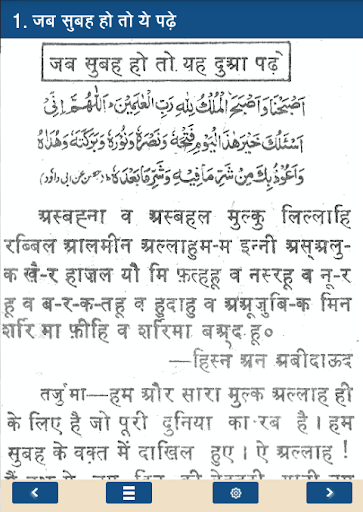 1. जब सुबह हो तो ये पढ़े
जब सुबह हो तो यह दुआ पढ़े
اَصْبَحْنَا وَاَصْبَحَ الْمُلْكُ لِلّٰهِ رَبِّ الْعٰلَمِيْنَ اَللّٰهُمَّ اِنِّىْ
اَسْئَلُكَ خَيْرَ هٰذَا الْيَوْمِ فَتْحَهٗ وَنَصْرَهٗ وَنُوْرَهٗ وَبَرَكَتَهٗ وَهُدَاهُ
وَاَعُوْذُ بِكَ مِنْ شَرِّ مَا فِيْهِ وَشَرِّ مَا بَعْدَهٗ (حصن عن ابی داؤد)
अस्बह्ना व अस्बहल मुल्कु लिल्लाहि
रब्बिल आलमीन अल्लाहुम-म इन्नी अस्अलु-
क खै-र हाज़ल यौ मि फ़त्हहू व नस्रहू व नू-र
हू व ब-र-क-तहू व हुदाहु व अअूज़ुबि-क मिन
शर्रि मा फ़ीहि व शर्रिमा बअ्दहू०
—हिस्न अन अबीदाऊद
तर्जुमा—हम और सारा मुल्क अल्लाह ही
के लिए है जो पूरी दुनिया का रब है। हम
सुबह के वक़्त में दाखिल हुए। ऐ अल्लाह !